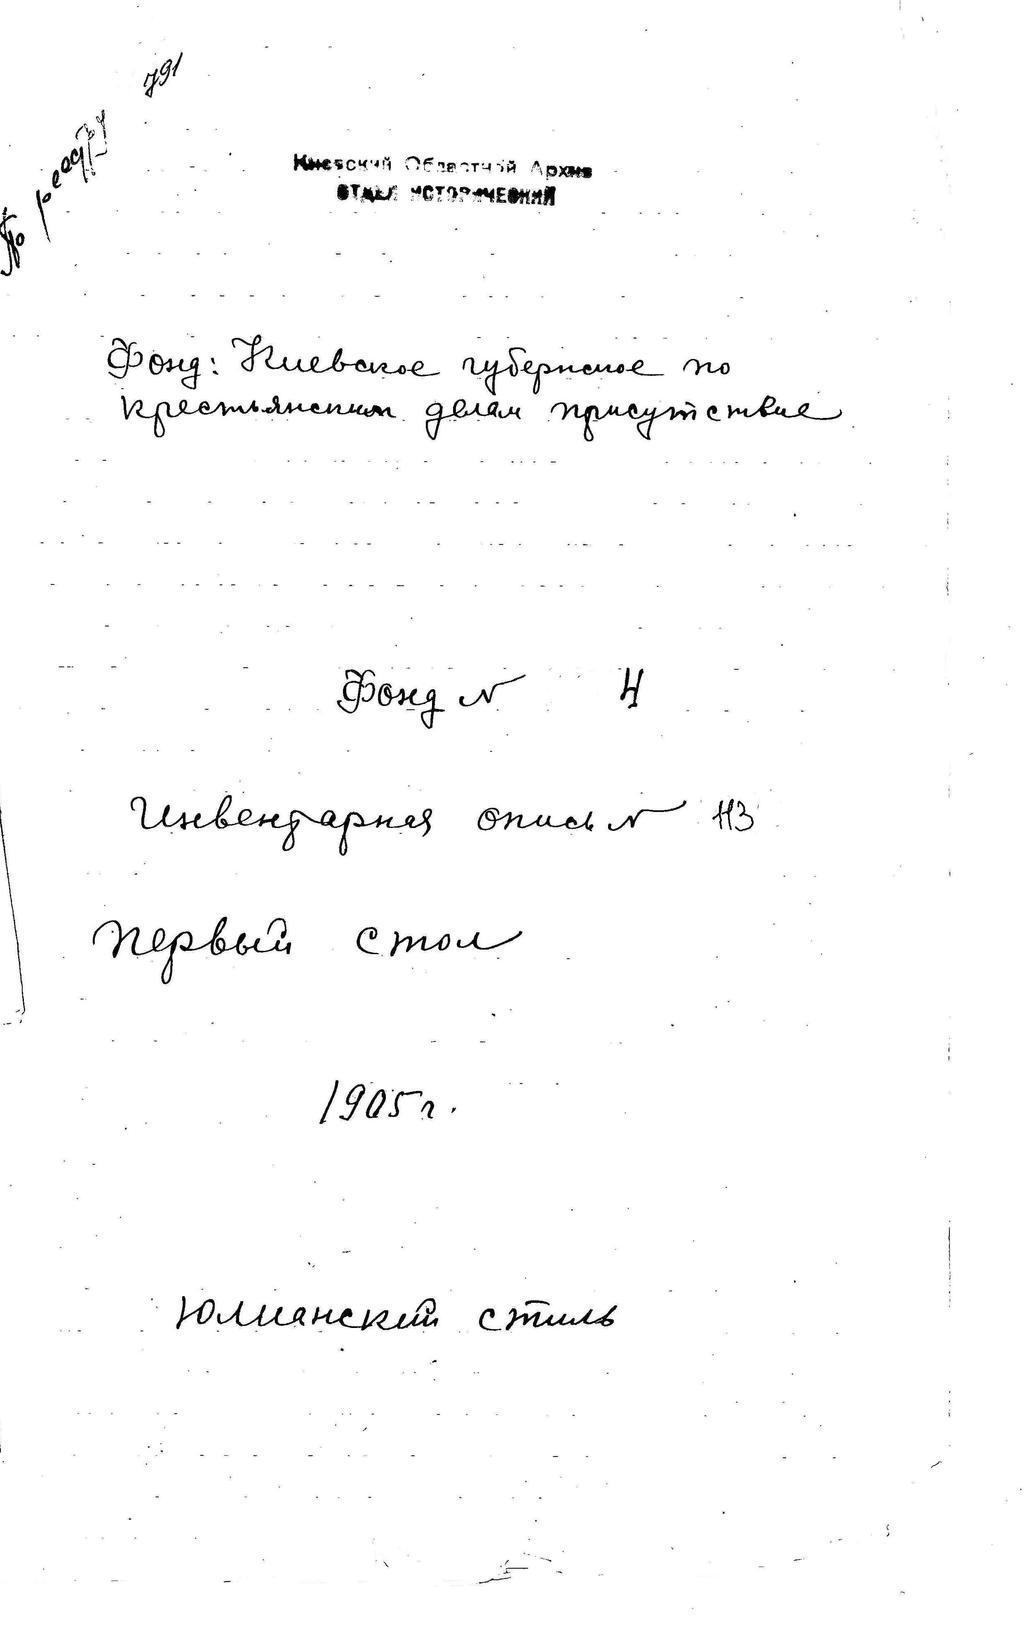 По реестру 791
Киевский Областной Архив
ОТДЕЛ ИСТОРИЧЕСКИЙ
Фонд: Киевское губернское по
крестьянским делам присутствие
Фонд № 4
Инвентарная опись № 113
Первый стол
1905 г.
Юлианский стиль